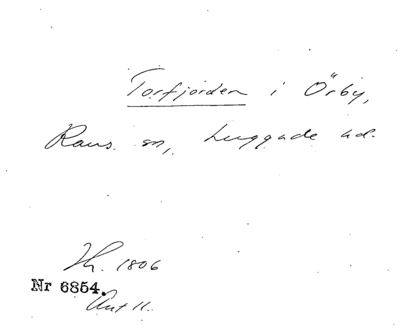 Torfjorden i Örby,
Raus sn, Luggude hd.
Th. 1806
Nr 6854.
Ant 11.